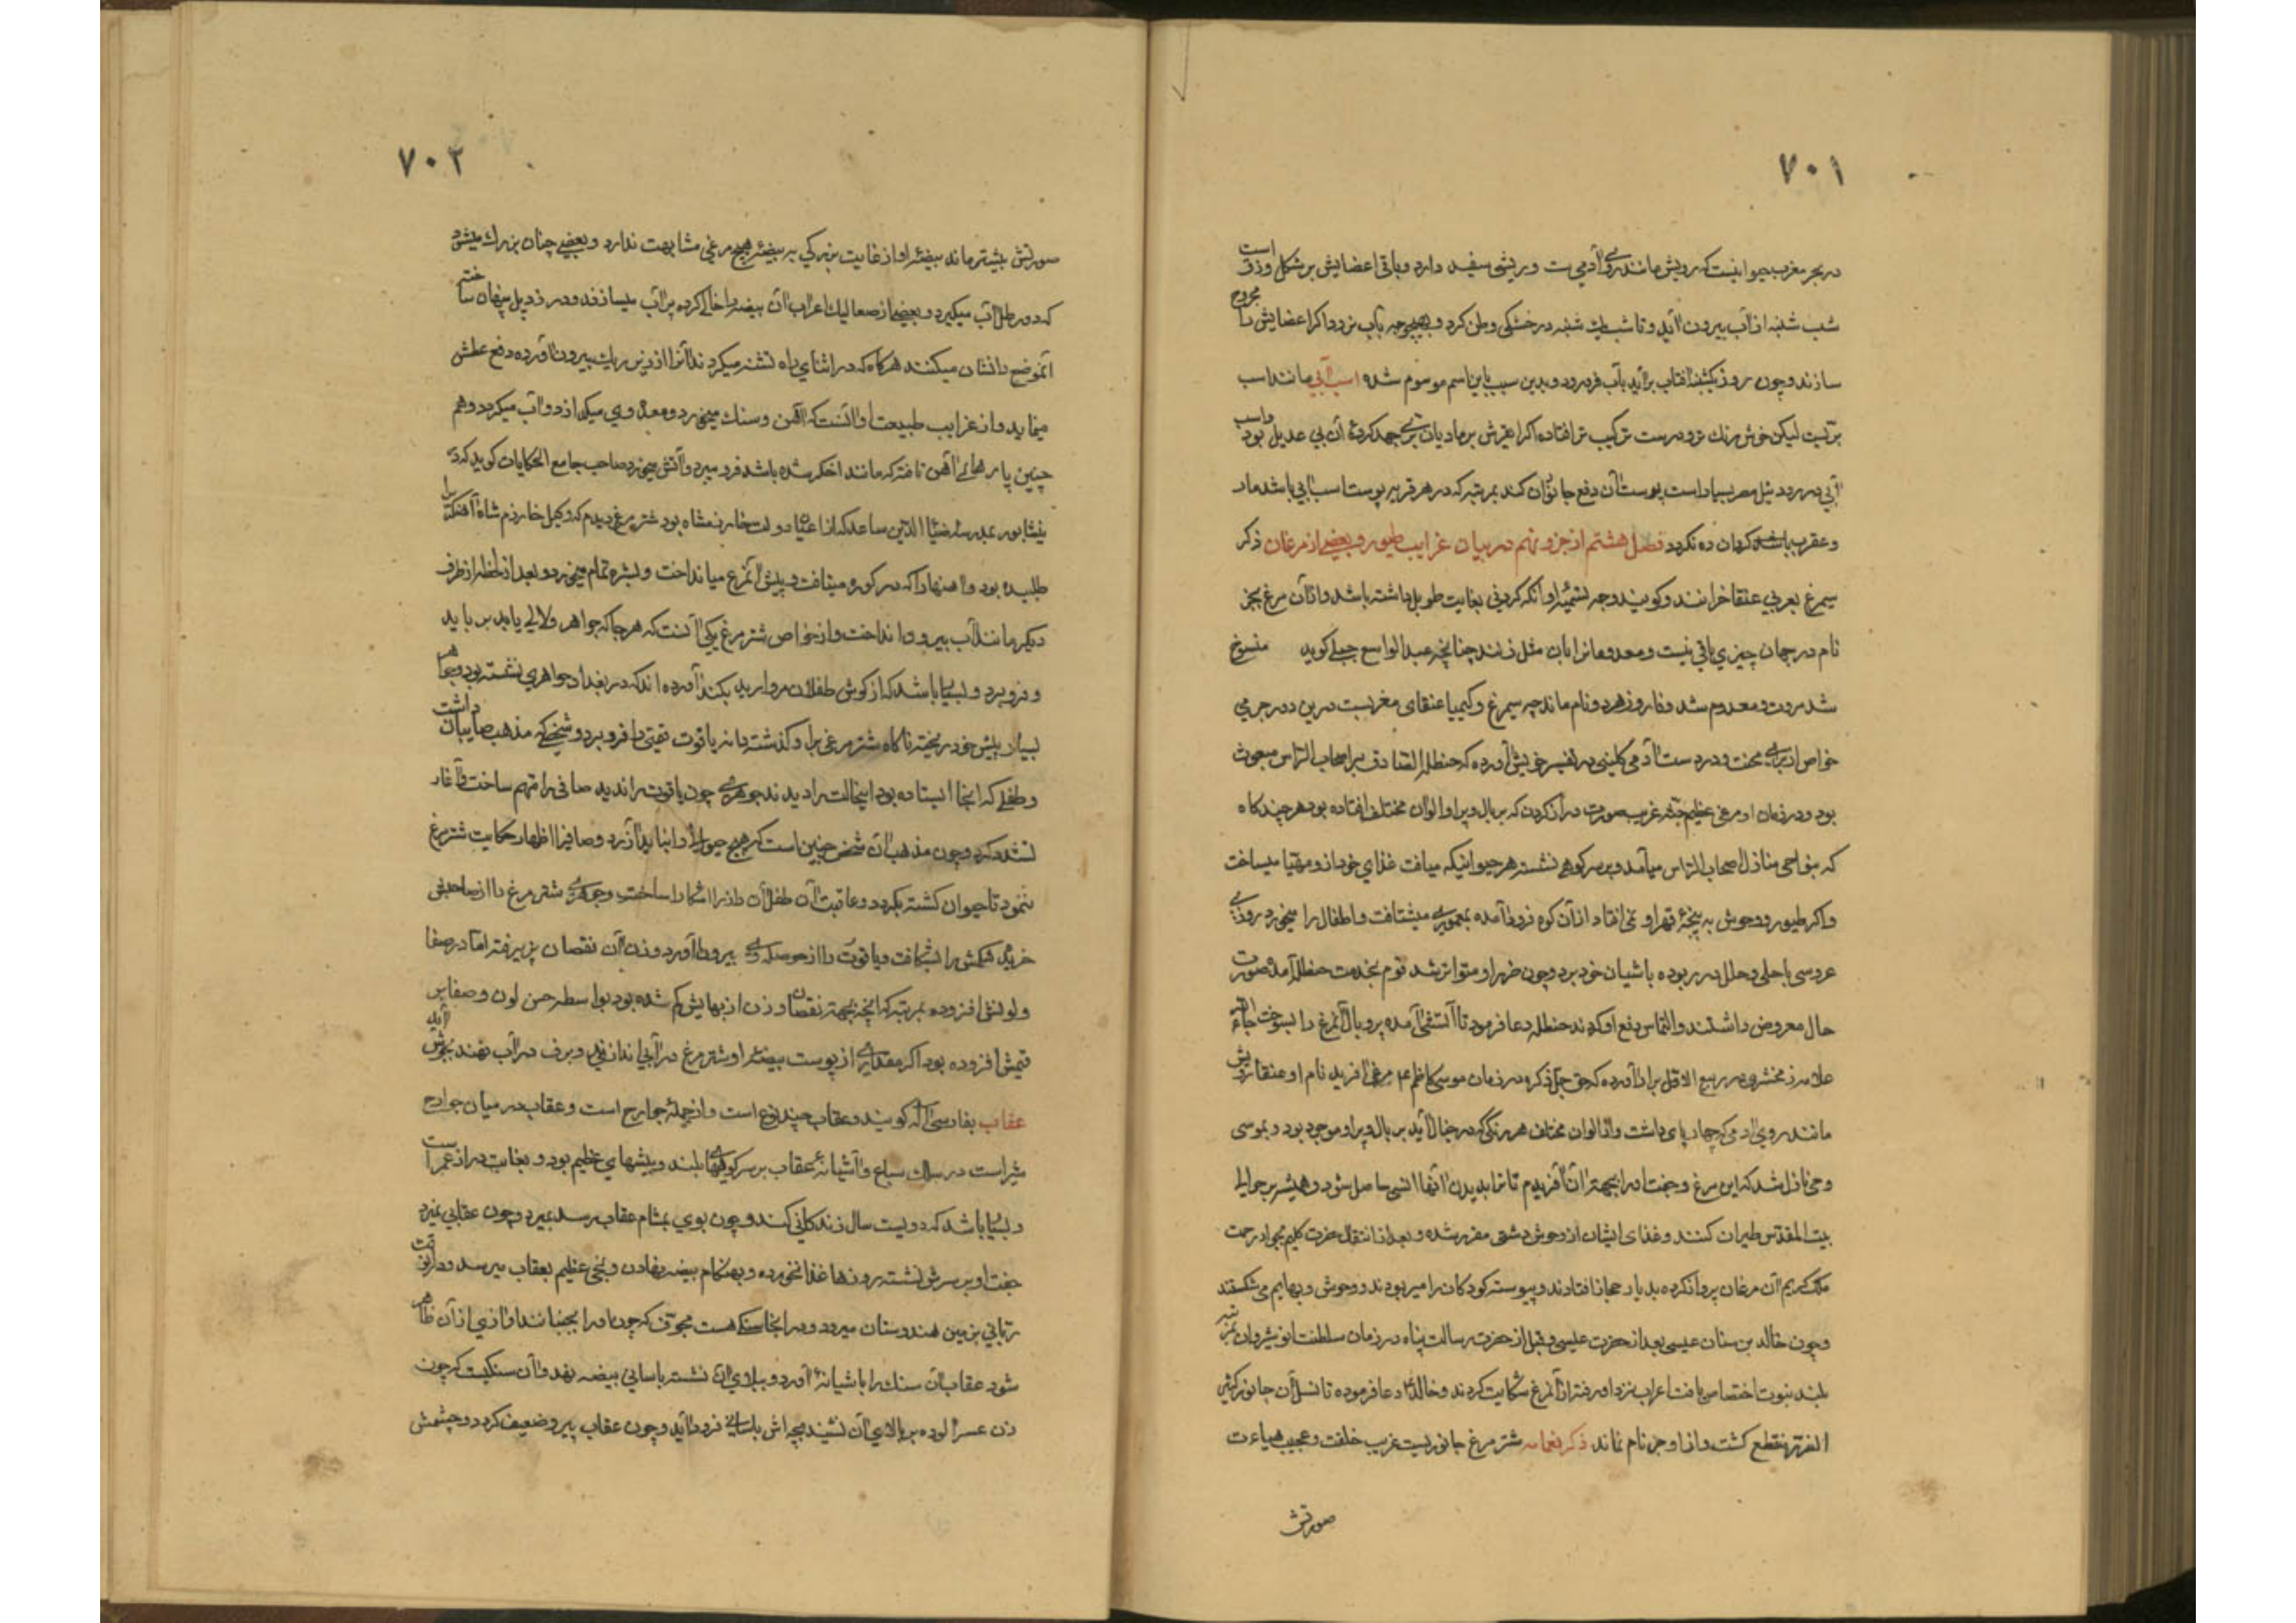 ٧٠١
در بحر مغرب حیوانیست که رویش مانند روی آدمی است و ریشی سفید دارد و باقی اعضایش بر شکل وزق است
شب شنبه از آب بیرون آید و تا شب یک شنبه در خشکی وطن کرد و بهیچوجه بآب نرود اکر اعضایش را مجروح
سازند و چون روز یکشنبه افتاب براید بآب فرو رود و بدین سبب باین اسم موسوم شده اسب آبی مانند اسب
بریست لیکن خوش رنک تر و درست ترکیب تر افتاده اکر اهرش بر مادیان بری جهد کره آن بی عدیل بود واسب
آبی در رود نیل مصر بسیار است پوست آن دفع جانوران کند بمرتبه که در هر قریه پوست اسب ابی باشد مار
و عقرب باشد کرهان ده نکردد فصل هشتم از جزو نهم در بیان غرایب طیور و بعضی از مرغان ذکر
سیمرغ بعربی عنقا خوانند و کویند وجه تسمیه او آنکه کردنی بغایت طویل داشته باشد و از آن مرغ بجز
نام در جهان چیزی باقی نیست و معدومانرا بان مثل زنند چنانچه عبدالواسع جبلی کوید منسوخ
شد مروت و معدوم شد وفا و زهر دو نام ماند چه سیمرغ و کیمیا عنقای مغربست درین دور خرمی
خواص از برای محنت و درد است آدمی کلبی در تفسیر خویش آورده که حنظله الصادق بر اصحاب الراس مبعوث
بود و در زمان او مرغی عظیم جثه غریب صورت دراز کردن که بر بال و پر او الوان مختلف افتاده بود هر چند کاه
که بنواحی منازل اصحاب الراس میآمد و بر سر کوهی نشسته هر حیوانیکه میافت غذای خود از و مهیا میساخت
و اکر طیور و وحوش به پنجه قهر او نمی افتاد از آن کوه فرود آمده بمعموره میشتافت و اطفال را میخورد روزی
عروسی با حلی و حلل در ربوده باشیان خود برد و چون ضرر او متواتر شد قوم بخدمت حنظله آمده صورت
حال معروض داشتند و التماس دفع او کردند حنظله دعا فرمود تا آتشی آمده پر و بال آنمرغ را بسوخت جاءالله
علامه زمخشری در ربیع الاول برار آورده که حق جل ذکره در زمان موسی کاظم ع مرغی آفرید نام او عنقا رویش
مانند روی ادمی که چهار پای داشت و از الوان مختلف هر رنکی که در خیال آید بر بال و پر او موجود بود و بموسی
وحی نازل شد که این مرغ و جفت او را بجهت آن آفریدم تا ترا بدیدن آنها انسی حاصل شود و همیشه بر حوالی
بیت المقدس طیران کنند و غذای ایشان از وحوش دشتی مقرر شده و بعد از انتقال حضرت کلیم بجوار رحمت
ملک کریم آن مرغان پرواز کرده بدیار حجاز افتادند و پیوسته کودکان را میربودند و وحوش و بهایم می شکستند
و چون خالد بن سنان عیسی بعد از حضرت عیسی و قبل از حضرت رسالت پناه در زمان سلطنت انوشیروان بمرتبه
بلند نبوت اختصاص یافت اعراب نزد او رفته از آنمرغ شکایت کردند و خالد دعا فرموده تا نسل آن جانور کثیر
الضرر منقطع کشت و از او جز نام نماند ذکر نعامه شتر مرغ جانوریست غریب خلقت و عجیب هیاءت
صورتش
٧٠٢
صورتش بشتر ماند بیضه او از غایت بزرکی به بیضه هیچ مرغی مشابهت ندارد و بعضی چنان بزرک میشود
که دو رطل آب میکیرد و بعضی از صعالیک اعراب آن بیضه را خالی کرده پر آب میسازند و در زیر ریک پنهان ساخته
آنموضع را نشان میکنند هرکاه که در اثنای راه تشنه میکردند آنرا از زیر ریک بیرون آورده دفع عطش
مینماید و از غرایب طبیعت او آنست که آهن و سنک میخورد و معده وی میکدازد و آب میکردد و هم
چنین پارهای آهن تافته که مانند اخکر شده باشد فرو میبرد و آتش میخورد صاحب جامع الحکایات کوید که در
نیشابور بمدرسه ضیاء الدین ساعد که از اعیان دولت خوارزمشاه بود شتر مرغی دیدم که وکیل خوارزم شاه آهنکر را
طلبیده بود و آهنها را که در کوره میتافت و پیش آنمرغ میانداخت و بشره تمام میخورد و بعد از لحظه از طرف
دیکر مانند آب بیرون انداخت و از خواص شتر مرغ یکی آنست که هر جا که جواهر و لالی یابد برباید
و فرو برد و بسیار باشد که از کوش طفلان مروارید بکند آورده اند که در بغداد جواهری نشسته بود و جواهر
بسیار پیش خود ریخته ناکاه شتر مرغی بر او کذشته دانه یاقوت قیمتی را فرو برد و شخصی که مذهب صابیان داشت
و طفلی که آنجا ایستاده بود اینحالت را دیدند جوهری چون یاقوت را ندید صافی را متهم ساخت و آغاز
تشدد کرد و چون مذهب آن شخص چنین است که هیچ حیوان را نباید آزرد و صافیرا اظهار حکایت شتر مرغ
ننمود تا حیوان کشته نکردد و عاقبت آن طفل آن راز را اشکارا ساخت و جوهری شتر مرغ را از صاحبش
خریده شکمش را بشکافت و یاقوت را از حوصله وی بیرون آورد وزن آن نقصان پزیرفته اما در صفا
و لونش افزوده بمرتبه که آنچه بجهت نقصان وزن از بهایش کم شده بود بواسطه حسن لون و صفا بر
قیمتش افزوده بود اکر مقداری از پوست بیضه او شتر مرغ در آبی اندازند و برف در آب نهند بجوش آید
عقاب بفارسی آله کویند و عقاب چند نوع است و از جمله جوارح است و عقاب در میان جوارح
شیر است در سلک سباع و آشیانه عقاب بر سر کوههای بلند و پیشهای عظیم بود و بغایت دراز عمر است
و بسیار باشد که دویست سال زندکانی کند و چون بوی بمشام عقاب رسد بمیرد و چون عقابی بمیرد
جفت او بر سرش نشسته روزها غذا نخورده و بهنکام بیضه نهادن رنجی عظیم بعقاب میرسد و در آنوقت
ربانی بزمین هندوستان میرود و در آنجا سنکی هست مجوف که چون او را بجنبانند آوازی از آن ظاهر
شود عقاب آن سنک را باشیانه آورد و ببالای آن نشسته باسانی بیضه نهد و آن سنکیست که چون
زن عسر الولاده بر بالای آن نشیند بچه اش باسانی فرود آید و چون عقاب پیر و ضعیف کردد و چشمش